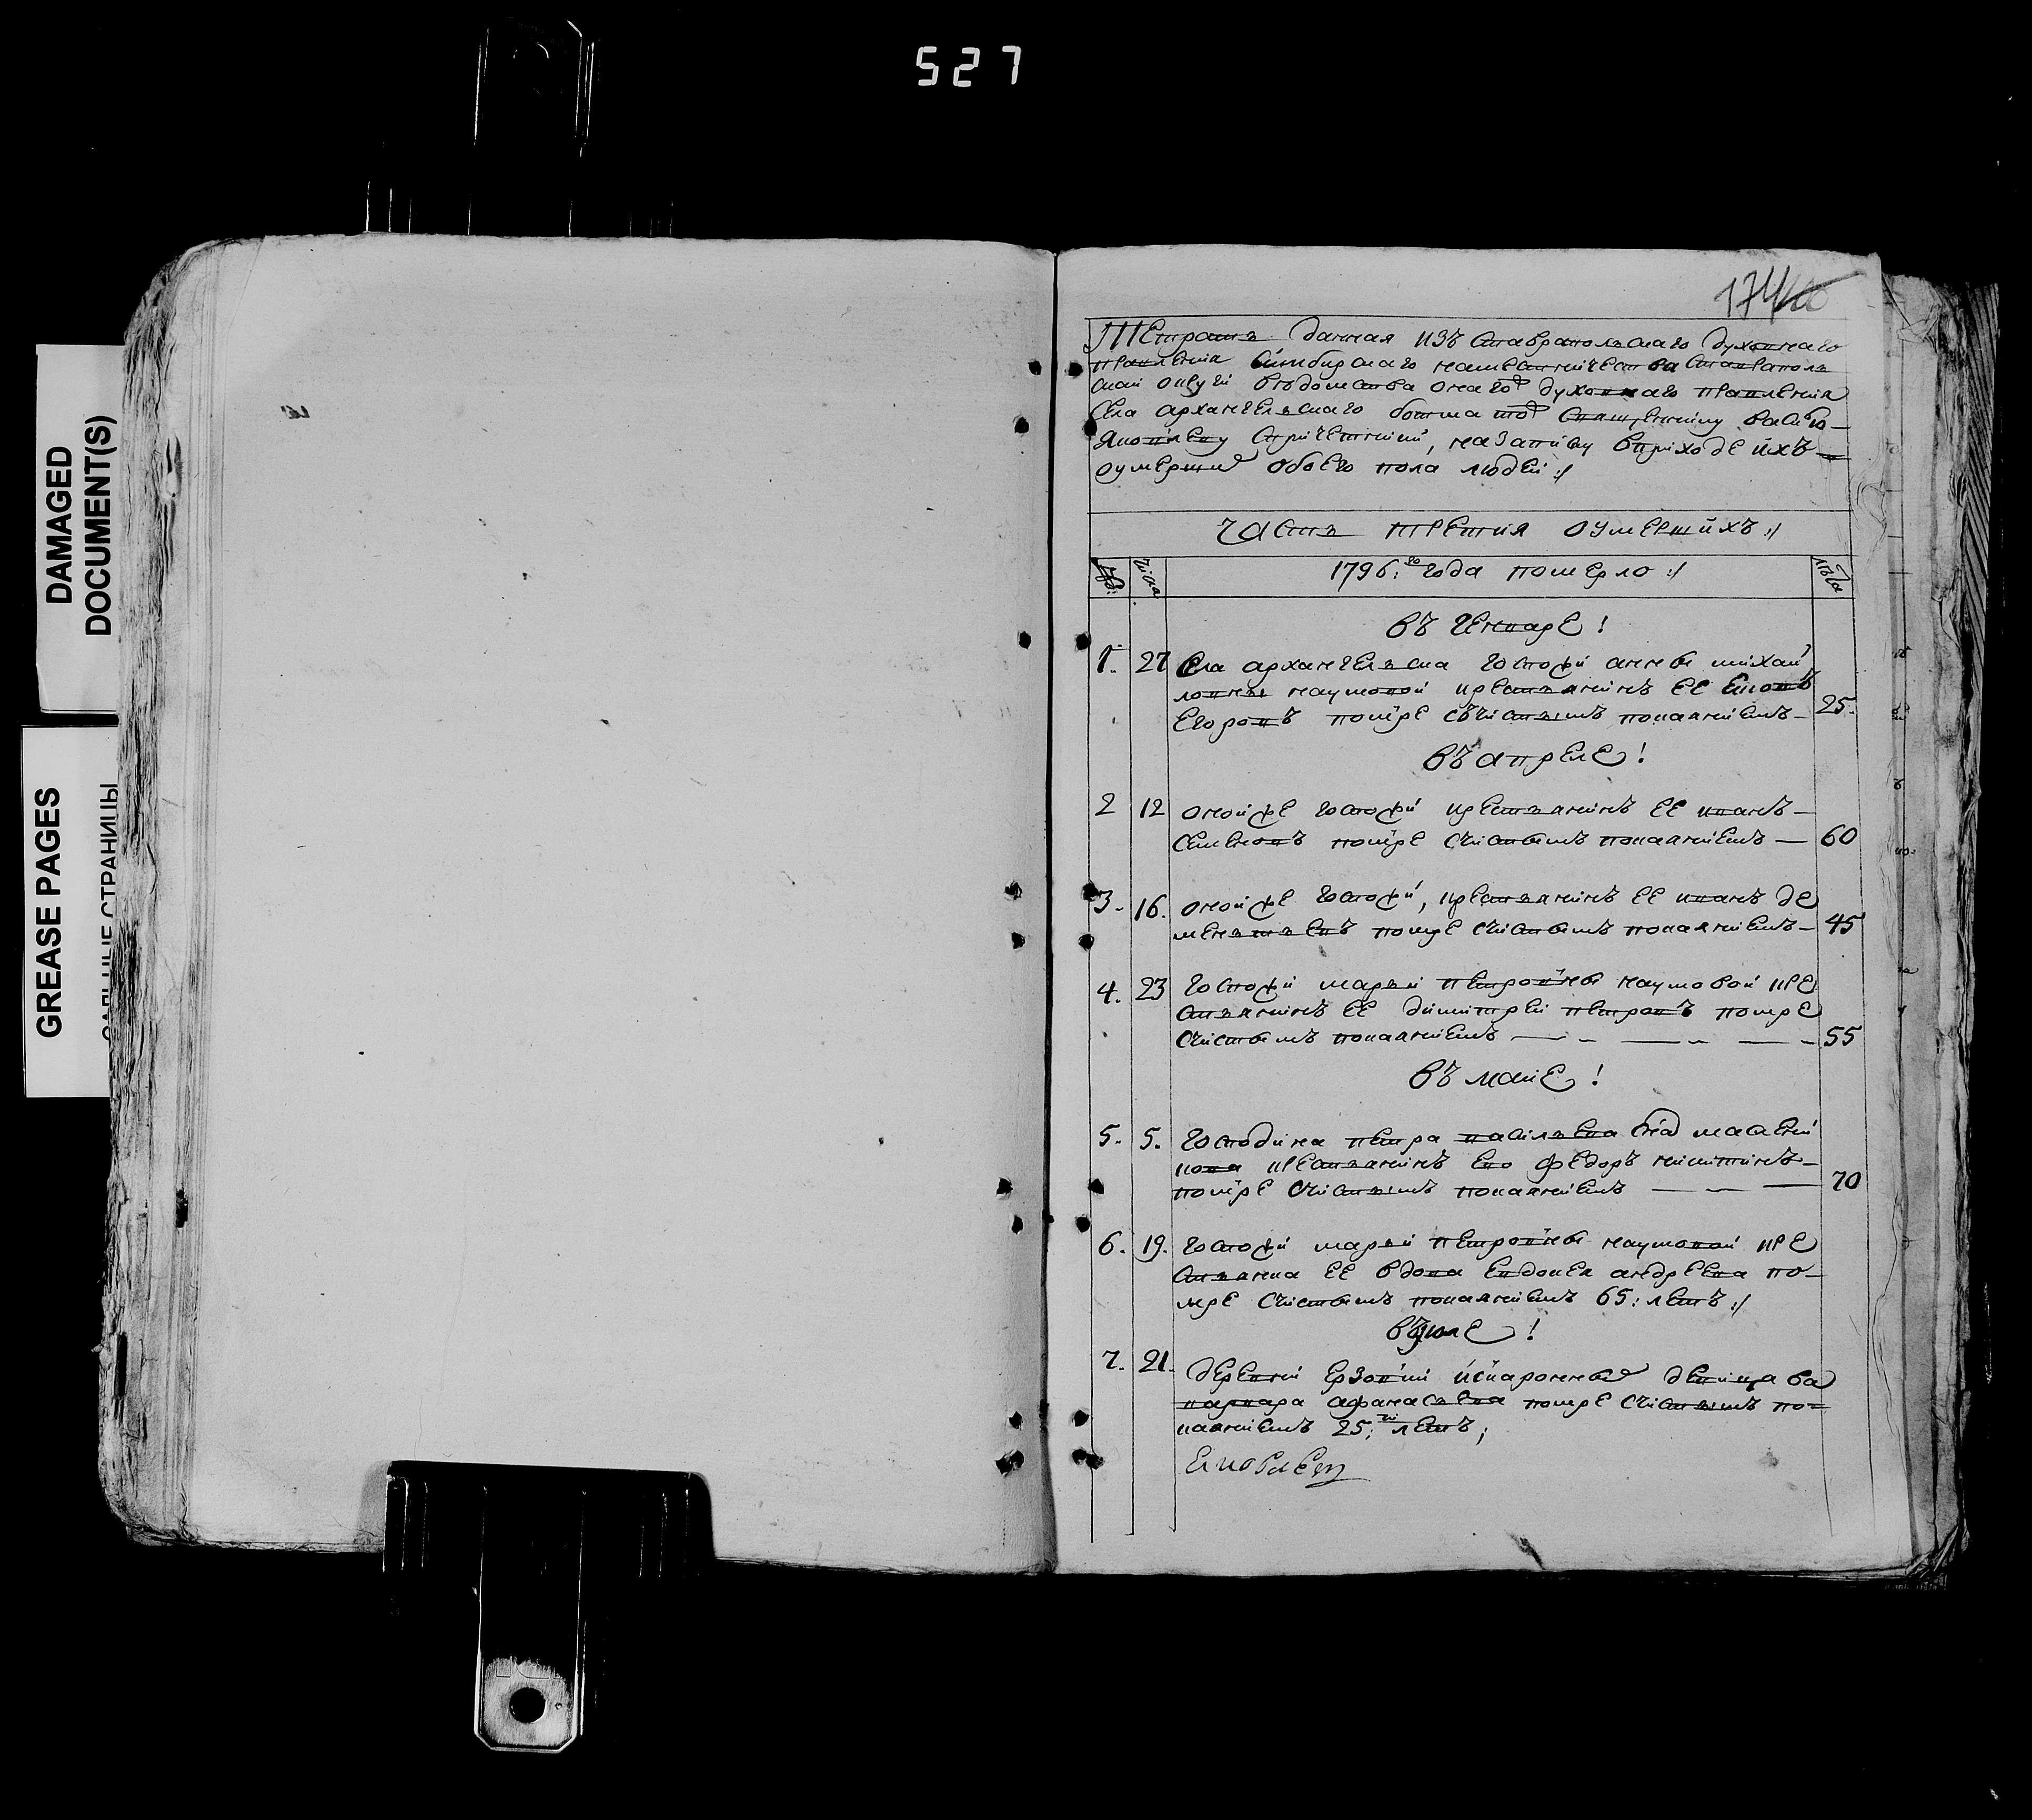 527
DAMAGED
DOCUMENT(S)
GREASE PAGES
СТРАНИЦЫ
174
Тетрать данная изъ ставрапольскаго духовнаго
правления синбирскаго наместничества ставраполь
ской округи ведомства онаго духовнаго правления
села архангельскаго тож священнику
Яковлеву спричетники, назаписку вприходе ихъ
оумерши обоего пола людей :/
Часть третия оумершихъ :/
числа
1796: го года померло :/
лѣта
въ генваре !
1. 27 села архангельска госпожи анны михай
ловны наумовой крестьянинъ ее
егоровъ помре счистымъ покаяниемъ — 25.
въ апреле !
2 12 оной же госпожи крестьянинъ ее иванъ —
семеновъ помре счистымъ покаяниемъ — 60
3. 16. оной же госпожи, крестьянинъ ее иванъ де
ментьевъ помре счистымъ покаяниемъ — 45
4. 23 госпожи марьи петровны наумовой кре
стьянинъ ее димитрей петровъ помре
счистымъ покаяниемъ — 55
въ маие !
5. 5. господина петра васильева сна
крестьянинъ ево федоръ никитинъ —
помре счистымъ покаяниемъ — 70
6. 19. госпожи марьи петровны наумовой кре
стьянка ее вдова евдокея андреевна по-
мре счистымъ покаяниемъ 65: летъ :/
въ июле !
7. 21. деревни ерзовки девица
варвара афанасьева помре счистымъ по=
каяниемъ 25: ти летъ ;